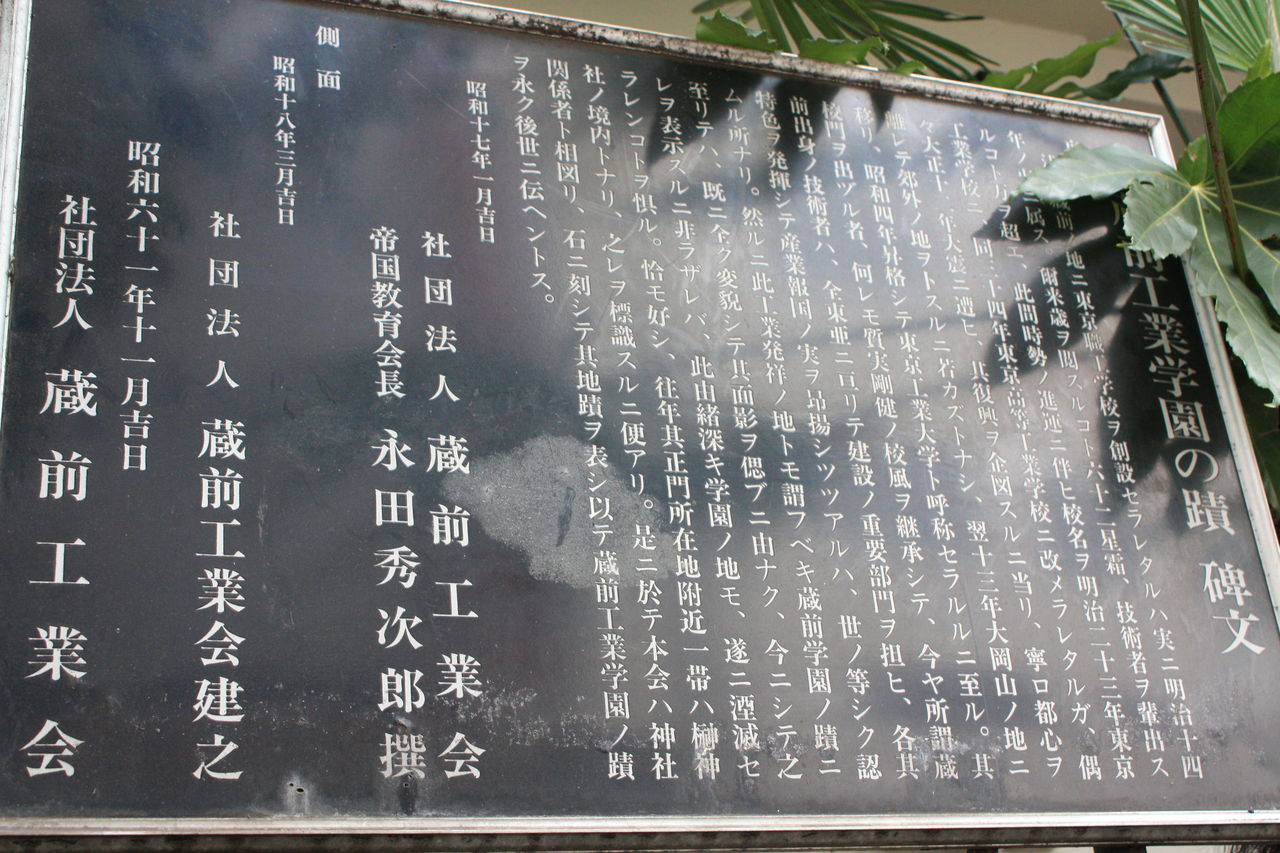 前工業学園の蹟 碑文
蔵前ノ地ニ東京職工学校ヲ創設セラレタルハ実ニ明治十四
年ノ ニ属ス 爾来歳ヲ閲スルコト六十二星霜、技術者ヲ輩出ス
ルコト万ヲ超エ、此間時勢ノ進運ニ伴ヒ校名ヲ明治二十三年東京
工業学校ニ、同三十四年東京高等工業学校ニ改メラレタルガ、偶
々大正十二年大震ニ遭ヒ、其復興ヲ企図スルニ当リ、寧ロ都心ヲ
離レテ郊外ノ地ヲトスルニ若カズトナシ、翌十三年大岡山ノ地ニ
移リ、昭和四年昇格シテ東京工業大学ト呼称セラルルニ至ル。其
校門ヲ出ヅル者、何レモ質実剛健ノ校風ヲ継承シテ、今ヤ所謂蔵
前出身ノ技術者ハ、全東亜ニ亘リテ建設ノ重要部門ヲ担ヒ、各其
特色ヲ発揮シテ産業報国ノ実ヲ昂揚シツツアルハ、世ノ等シク認
ムル所ナリ。然ルニ此工業発祥ノ地トモ謂フベキ蔵前学園ノ蹟ニ
至リテハ、既ニ全ク変貌シテ其面影ヲ偲ブニ由ナク、今ニシテ之
レヲ表示スルニ非ラザレバ、此由緒深キ学園ノ地モ、遂ニ湮滅セ
ラレンコトヲ惧ル。恰モ好シ、往年其正門所在地附近一帯ハ榊神
社ノ境内トナリ、之レヲ標識スルニ便アリ。是ニ於テ本会ハ神社
関係者ト相図リ、石ニ刻シテ其地蹟ヲ表シ以テ蔵前工業学園ノ蹟
ヲ永ク後世ニ伝ヘントス。
昭和十七年一月吉日
社団法人 蔵前工業会
帝国教育会長 永田秀次郎撰
側面
昭和十八年三月吉日
社団法人 蔵前工業会建之
昭和六十一年十一月吉日
社団法人 蔵前工業会